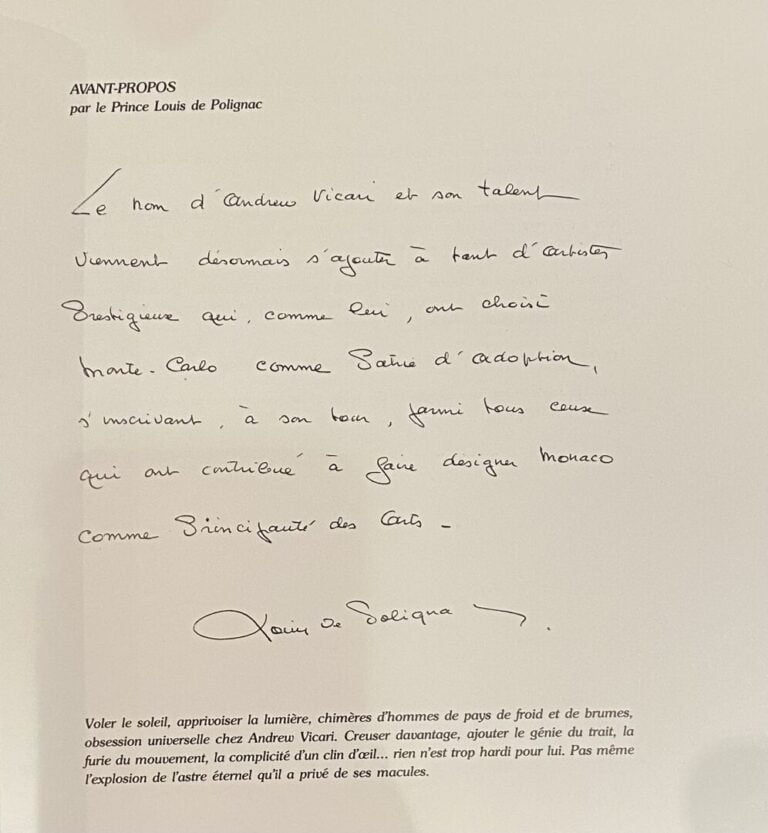 AVANT-PROPOS
par le Prince Louis de Polignac
Le nom d'Andrew Vicari et son talent
viennent désormais s'ajouter à tant d'artistes
Prestigieux qui, comme lui, ont choisi
Monte-Carlo comme Patrie d'adoption,
s'inscrivant, à son tour, parmi tous ceux
qui ont contribué à faire designer Monaco
comme Principauté des Arts -
Louis de Polignac.
Voler le soleil, apprivoiser la lumière, chimères d'hommes de pays de froid et de brumes,
obsession universelle chez Andrew Vicari. Creuser davantage, ajouter le génie du trait, la
furie du mouvement, la complicité d'un clin d'œil... rien n'est trop hardi pour lui. Pas même
l'explosion de l'astre éternel qu'il a privé de ses macules.